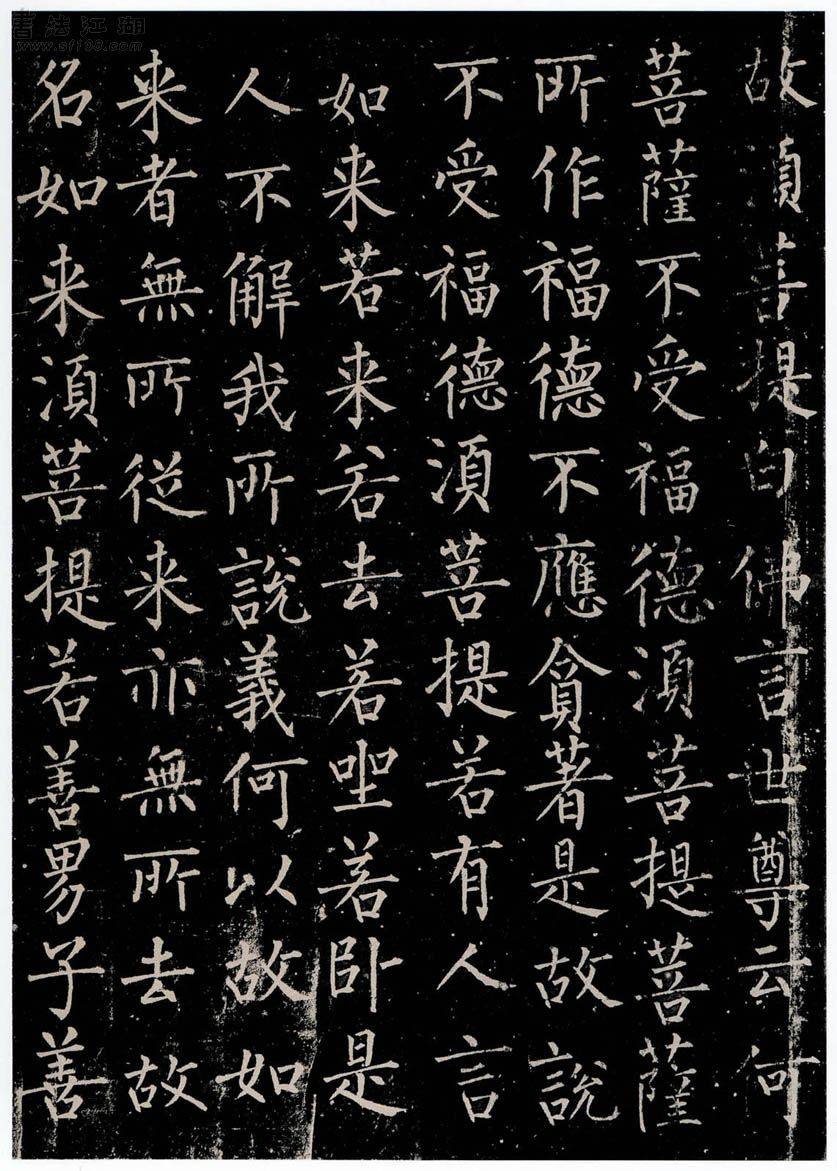 書法江湖
www.sf108.com
故須菩提白佛言世尊云何
菩薩不受福德須菩提菩薩
所作福德不應貪著是故說
不受福德須菩提若有人言
如来若来若去若坐若卧是
人不解我所說義何以故如
来者無所從来亦無所去故
名如来須菩提若善男子善